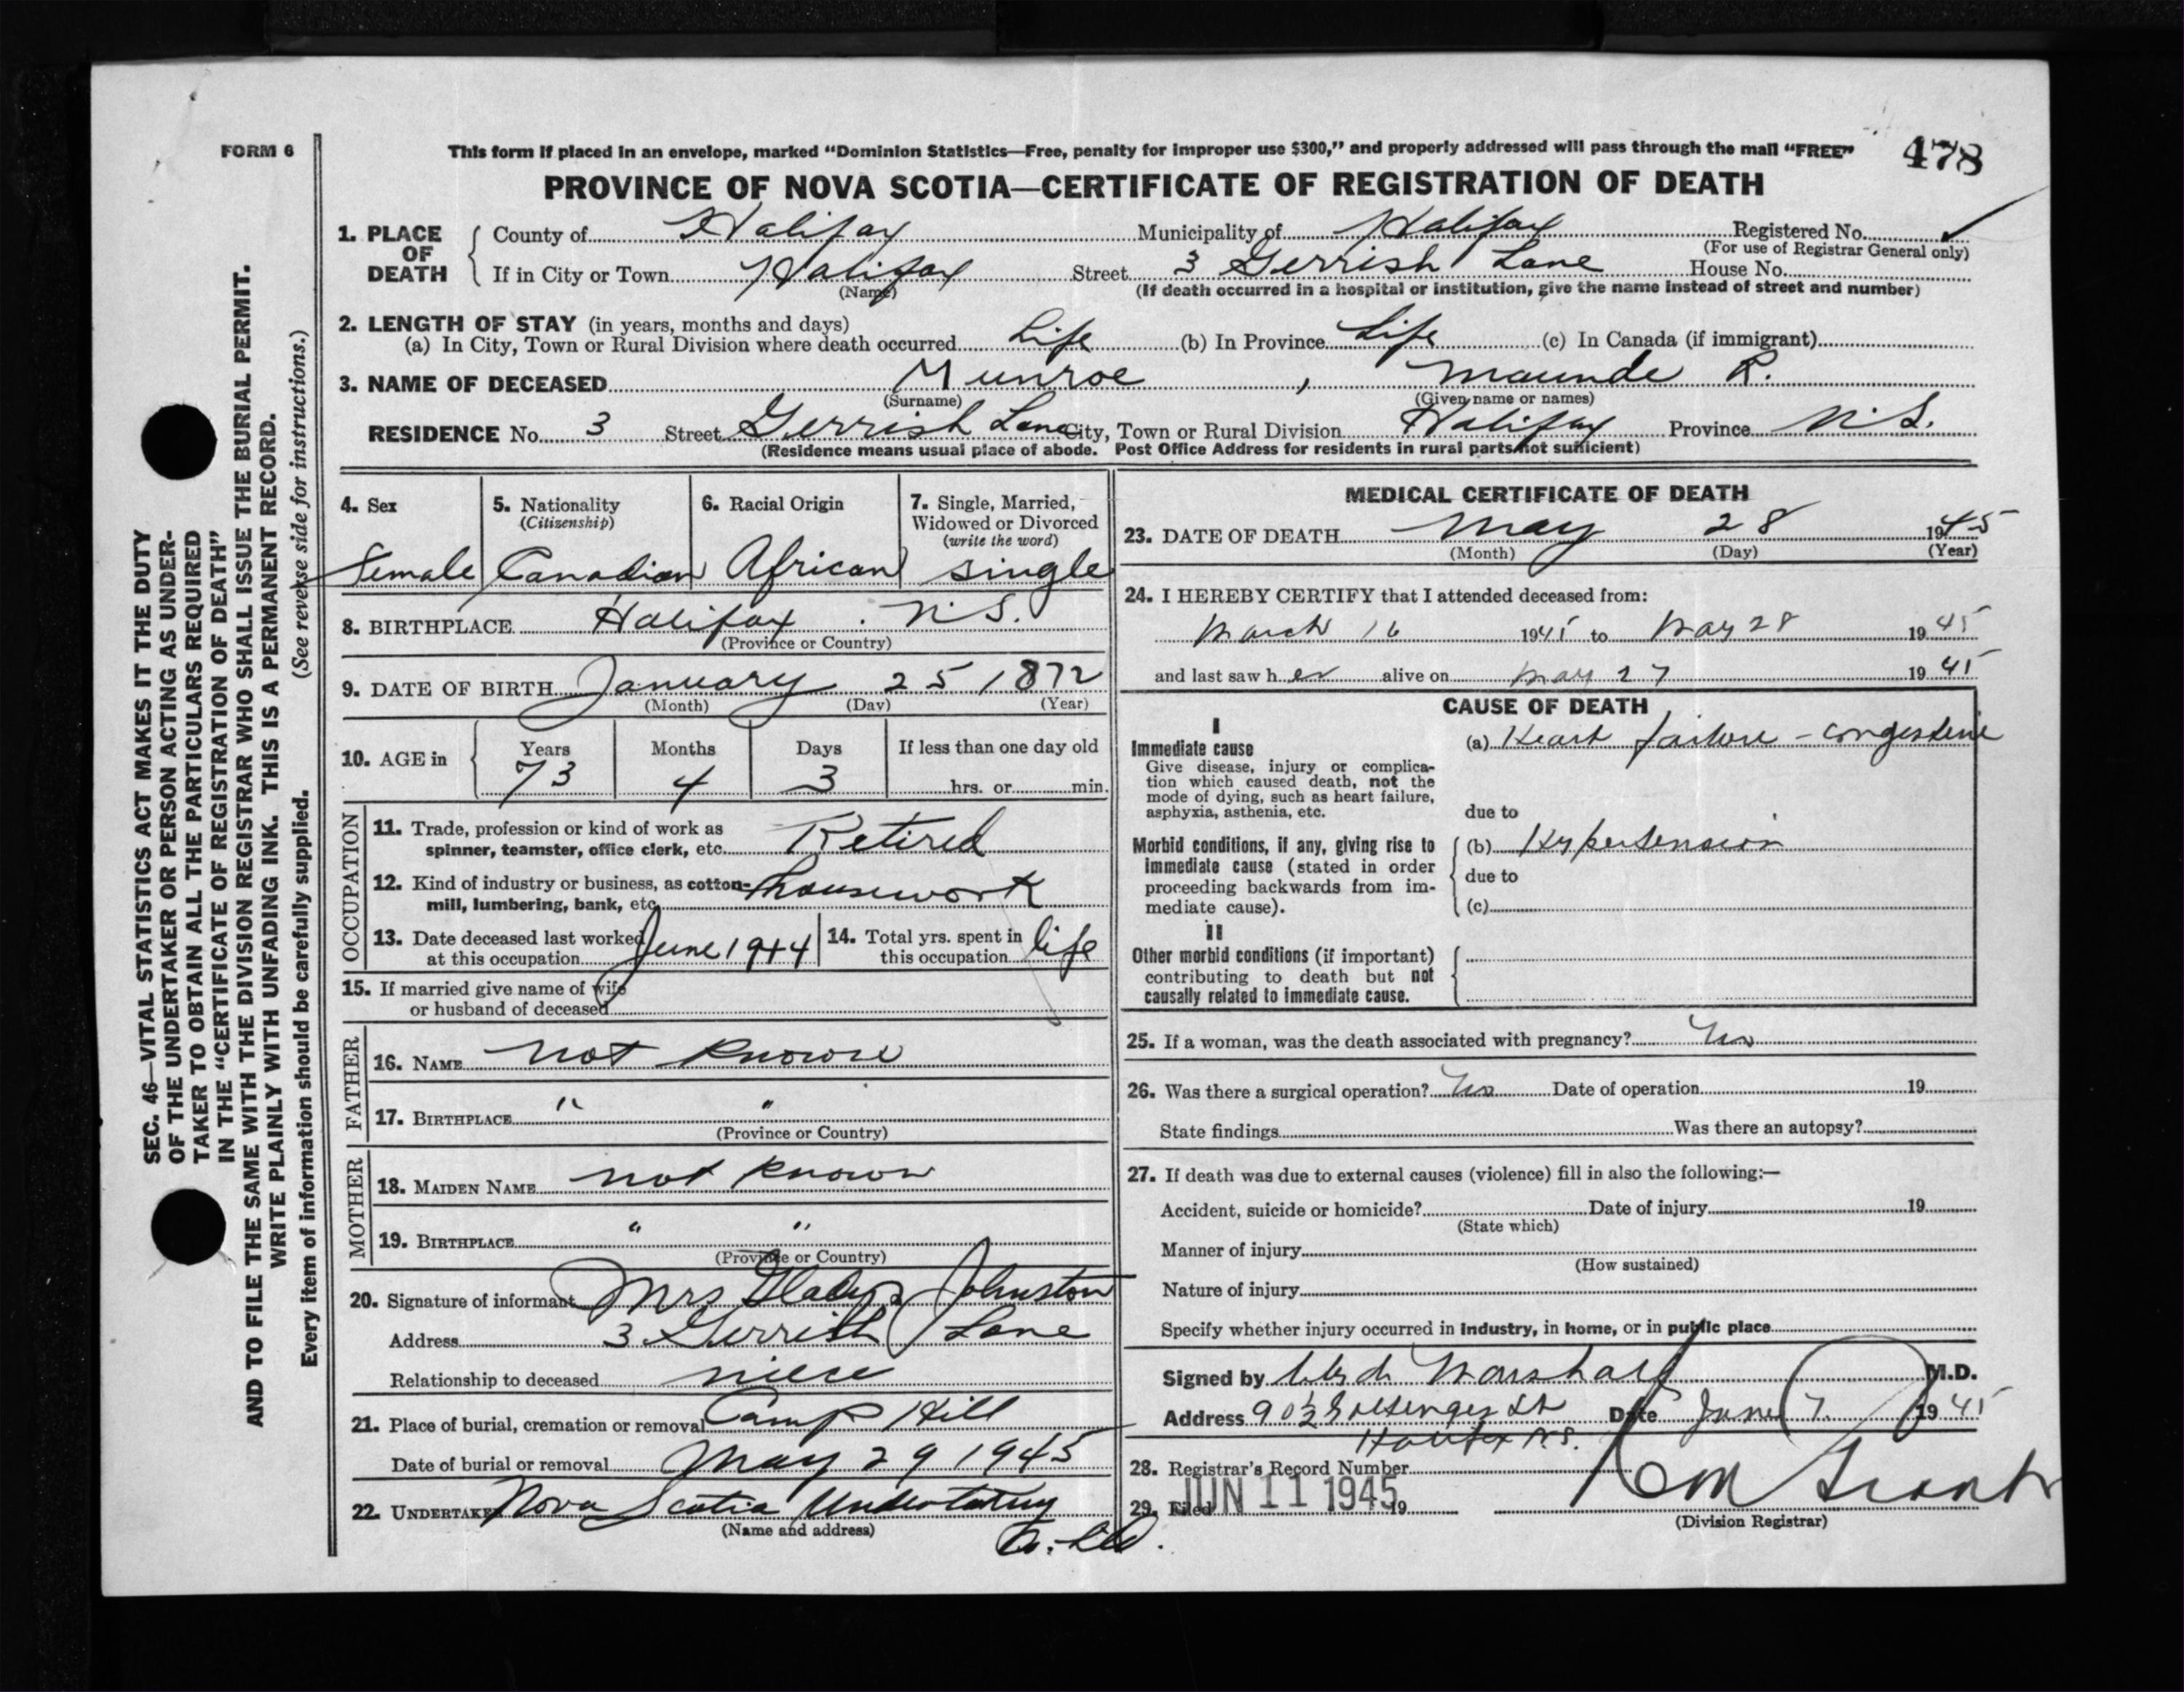 FORM 6
This form if placed in an envelope, marked “Dominion Statistics—Free, penalty for improper use $300,” and properly addressed will pass through the mail “FREE”
478
PROVINCE OF NOVA SCOTIA—CERTIFICATE OF REGISTRATION OF DEATH
1. PLACE OF DEATH County of Halifax Municipality of Halifax Registered No.
(For use of Registrar General only)
If in City or Town Halifax Street 3 Gerrish Lane House No.
(Name) (If death occurred in a hospital or institution, give the name instead of street and number)
2. LENGTH OF STAY (in years, months and days)
(a) In City, Town or Rural Division where death occurred Life (b) In Province Life (c) In Canada (if immigrant)
3. NAME OF DECEASED Munroe , Maunde R.
(Surname) (Given name or names)
RESIDENCE No. 3 Street Gerrish Lane City, Town or Rural Division Halifax Province N.S.
(Residence means usual place of abode. Post Office Address for residents in rural parts not sufficient)
4. Sex 5. Nationality 6. Racial Origin 7. Single, Married,
(Citizenship) Widowed or Divorced
(write the word)
Female Canadian African single
8. BIRTHPLACE Halifax . N.S.
(Province or Country)
9. DATE OF BIRTH January 25 1872
(Month) (Day) (Year)
10. AGE in Years Months Days If less than one day old
73 4 3 hrs. or min.
OCCUPATION
11. Trade, profession or kind of work as
spinner, teamster, office clerk, etc. Retired
12. Kind of industry or business, as cotton-
mill, lumbering, bank, etc. housework
13. Date deceased last worked
at this occupation June 1944
14. Total yrs. spent in
this occupation life
15. If married give name of wife
or husband of deceased
FATHER
16. NAME not known
17. BIRTHPLACE " "
(Province or Country)
MOTHER
18. MAIDEN NAME not known
19. BIRTHPLACE " "
(Province or Country)
20. Signature of informant Mrs Gladys Johnston
Address 3 Gerrish Lane
Relationship to deceased niece
21. Place of burial, cremation or removal Camp Hill
Date of burial or removal May 29 1945
22. UNDERTAKER Nova Scotia Undertaking
(Name and address) Co. Ltd.
MEDICAL CERTIFICATE OF DEATH
23. DATE OF DEATH May 28 1945
(Month) (Day) (Year)
24. I HEREBY CERTIFY that I attended deceased from:
March 16 1945 to May 28 1945
and last saw her alive on May 27 1945
CAUSE OF DEATH
I
Immediate cause
Give disease, injury or complica-
tion which caused death, not the
mode of dying, such as heart failure,
asphyxia, asthenia, etc.
(a) Heart failure - congestive
due to
Morbid conditions, if any, giving rise to
immediate cause (stated in order
proceeding backwards from im-
mediate cause).
(b) Hypertension
due to
(c)
II
Other morbid conditions (if important)
contributing to death but not
causally related to immediate cause.
25. If a woman, was the death associated with pregnancy? No
26. Was there a surgical operation? No Date of operation 19
State findings Was there an autopsy?
27. If death was due to external causes (violence) fill in also the following:—
Accident, suicide or homicide? Date of injury 19
(State which)
Manner of injury
(How sustained)
Nature of injury
Specify whether injury occurred in industry, in home, or in public place
Signed by Marshall M.D.
Address 90½ Gottingen St Date June 7 1945
Halifax N.S.
28. Registrar's Record Number
29. Filed JUN 11 1945 19
(Division Registrar)
SEC. 46—VITAL STATISTICS ACT MAKES IT THE DUTY
OF THE UNDERTAKER OR PERSON ACTING AS UNDER-
TAKER TO OBTAIN ALL THE PARTICULARS REQUIRED
IN THE “CERTIFICATE OF REGISTRATION OF DEATH”
AND TO FILE THE SAME WITH THE DIVISION REGISTRAR WHO SHALL ISSUE THE BURIAL PERMIT.
WRITE PLAINLY WITH UNFADING INK. THIS IS A PERMANENT RECORD.
Every item of information should be carefully supplied. (See reverse side for instructions.)